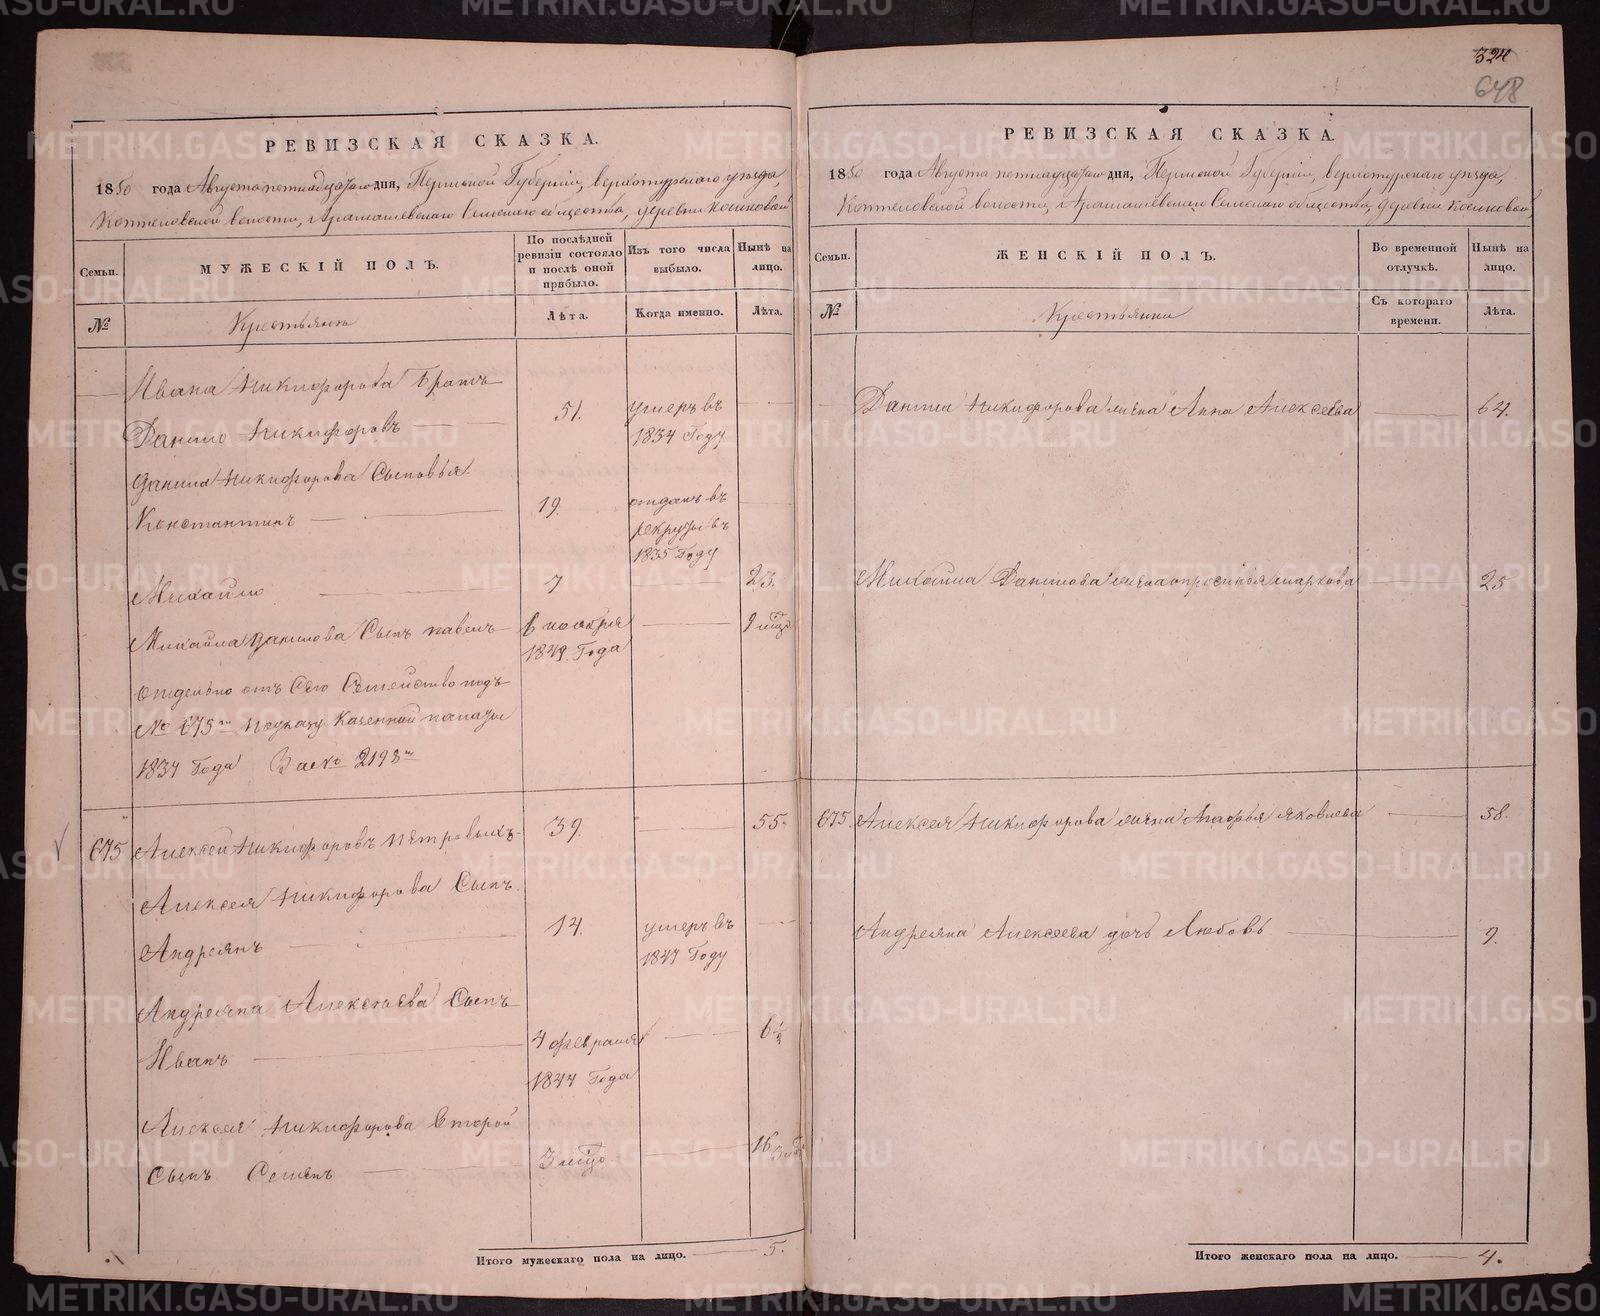 324
648
РЕВИЗСКАЯ СКАЗКА.
1850 года Августа пятнадцатаго дня, Пермской Губернии, верхотурскаго уезда,
Коптеловской волости, Арамашевскаго Сельскаго общества, деревни Косиковой
Семьи.
МУЖЕСКІЙ ПОЛЪ.
По послѣдней ревизіи состояло и послѣ оной прибыло.
Изъ того числа выбыло.
Нынѣ на лицо.
№
Крестьяне
Лѣта.
Когда именно.
Лѣта.
Ивана Никифорова Братъ
Данило Никифоровъ 51. умеръ въ
1834 Году
Данила Никифорова Сыновья
Константинъ 19. отданъ въ
рекруты въ
1835 Году
Михайло 7 23.
Михайла Данилова Сынъ павелъ 6 ноября 9 мѣцо
1849. Года
отдельно отъ Сего Семейство подъ
№ 675м поуказу Казенной палаты
1834 Года За № 2198м
675 Алексей Никифоровъ Петровыхъ 39. 55.
Алексея Никифорова Сынъ
Андреянъ 14. умеръ въ
1847 Году
Андреяна Алексеева Сынъ
Иванъ 4 февраля 6 1/2
1844 Года
Алексея Никифорова Второй
Сынъ Семенъ 3 мѣцо 16
Итого мужескаго пола на лицо. 5.
РЕВИЗСКАЯ СКАЗКА.
1850 года Августа пятнадцатаго дня, Пермской Губернии, верхотурскаго уезда,
Коптеловской волости, Арамашевскаго Сельскаго общества, деревни Косиковой
Семьи.
ЖЕНСКІЙ ПОЛЪ.
Во временной отлучкѣ.
Нынѣ на лицо.
№
Крестьянки
Съ котораго времени.
Лѣта.
Данила Никифорова жена Анна Алексеева 64.
Михайла Данилова жена опросинья маркова 25
675. Алексея Никифорова жена Марфья яковлева 58.
Андреяна Алексеева дочь Любовь 9.
Итого женскаго пола на лицо. 4.
METRIKI.GASO-URAL.RU